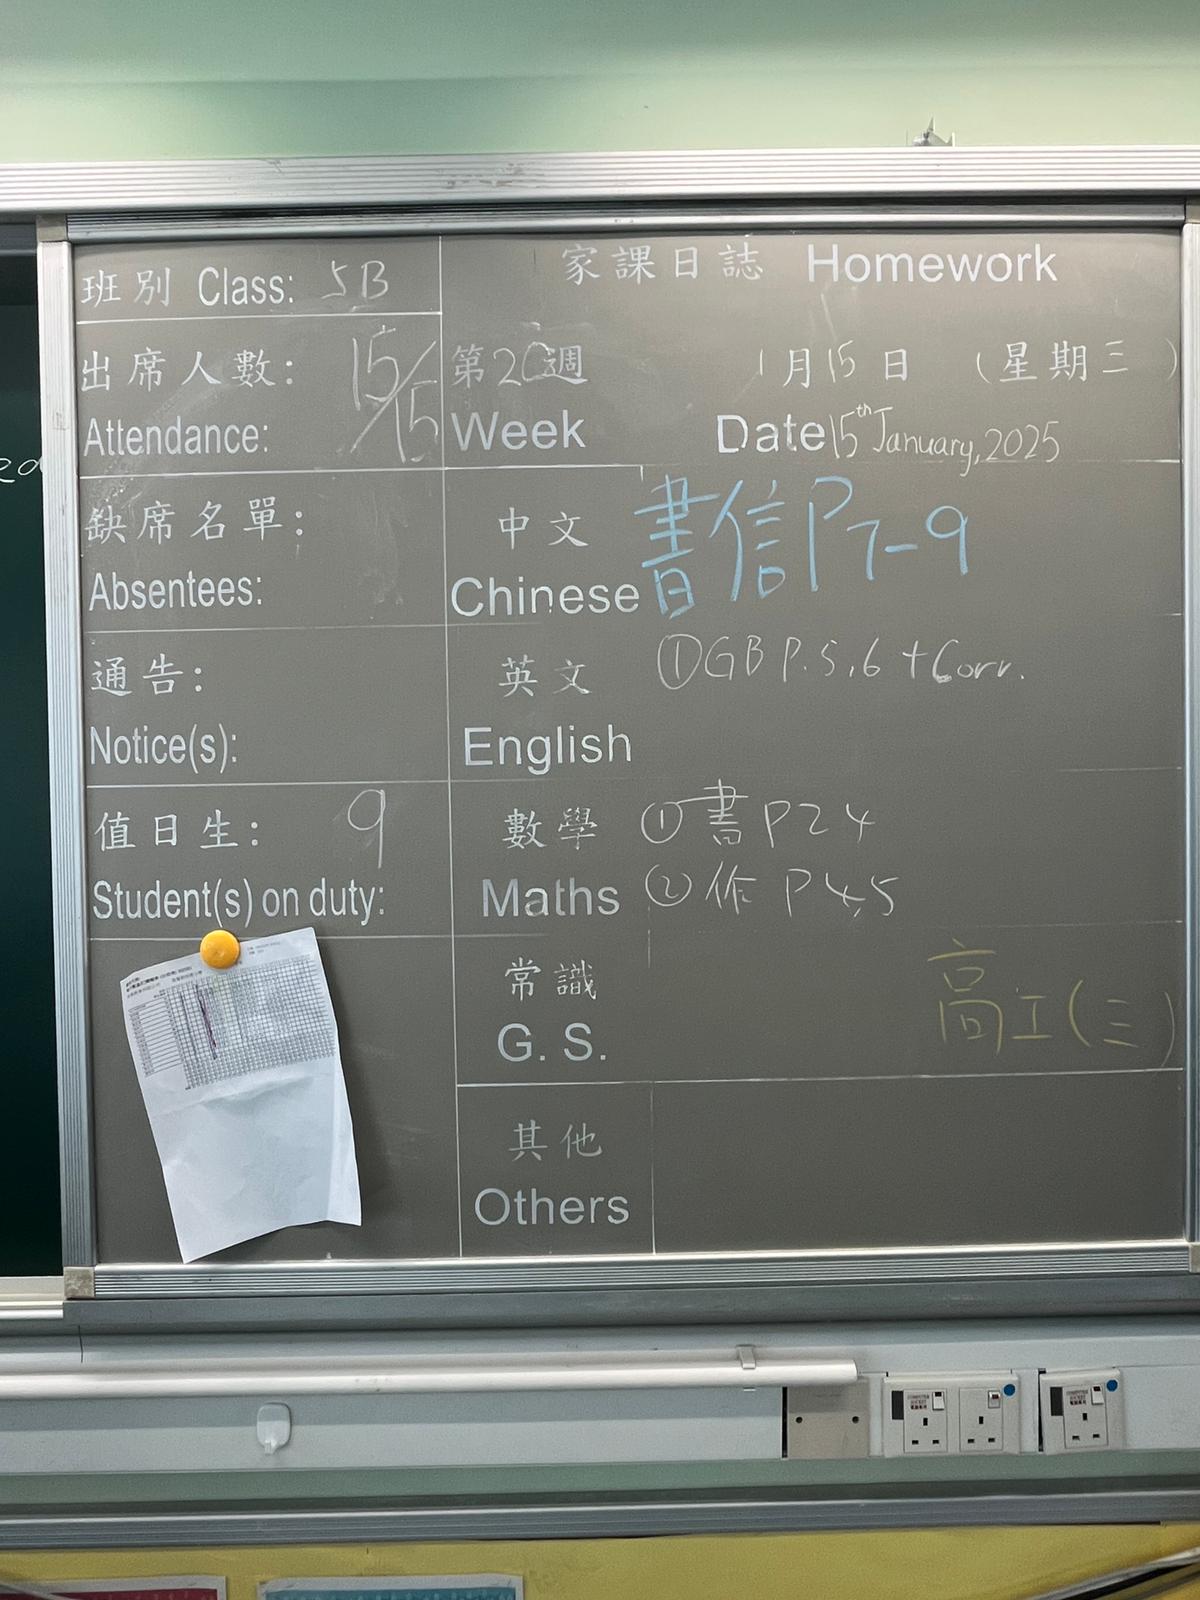 班別 Class: 5B
出席人數: 15/15
Attendance:
缺席名單:
Absentees:
通告:
Notice(s):
值日生: 9
Student(s) on duty:
家課日誌 Homework
第20週 1月15日 (星期三)
Week Date 15th January, 2025
中文 書信P7-9
Chinese
英文 ①GB P.5,6 + Corr.
English
數學 ①書P24
Maths ②作P4,5
常識
G. S. 高工(三)
其他
Others